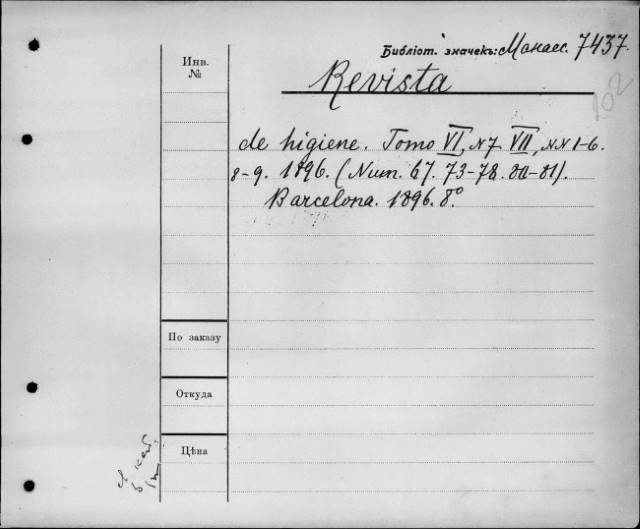 Библіот. значекъ: Манасс. 7437.
202
Инв.
№
Revista
de higiene. Tomo VI, N7. VII, NN 1-6.
8-9. 1896. (Num. 67. 73-78. 80-81).
Barcelona. 1896. 8º.
По заказу
Откуда
Цѣна